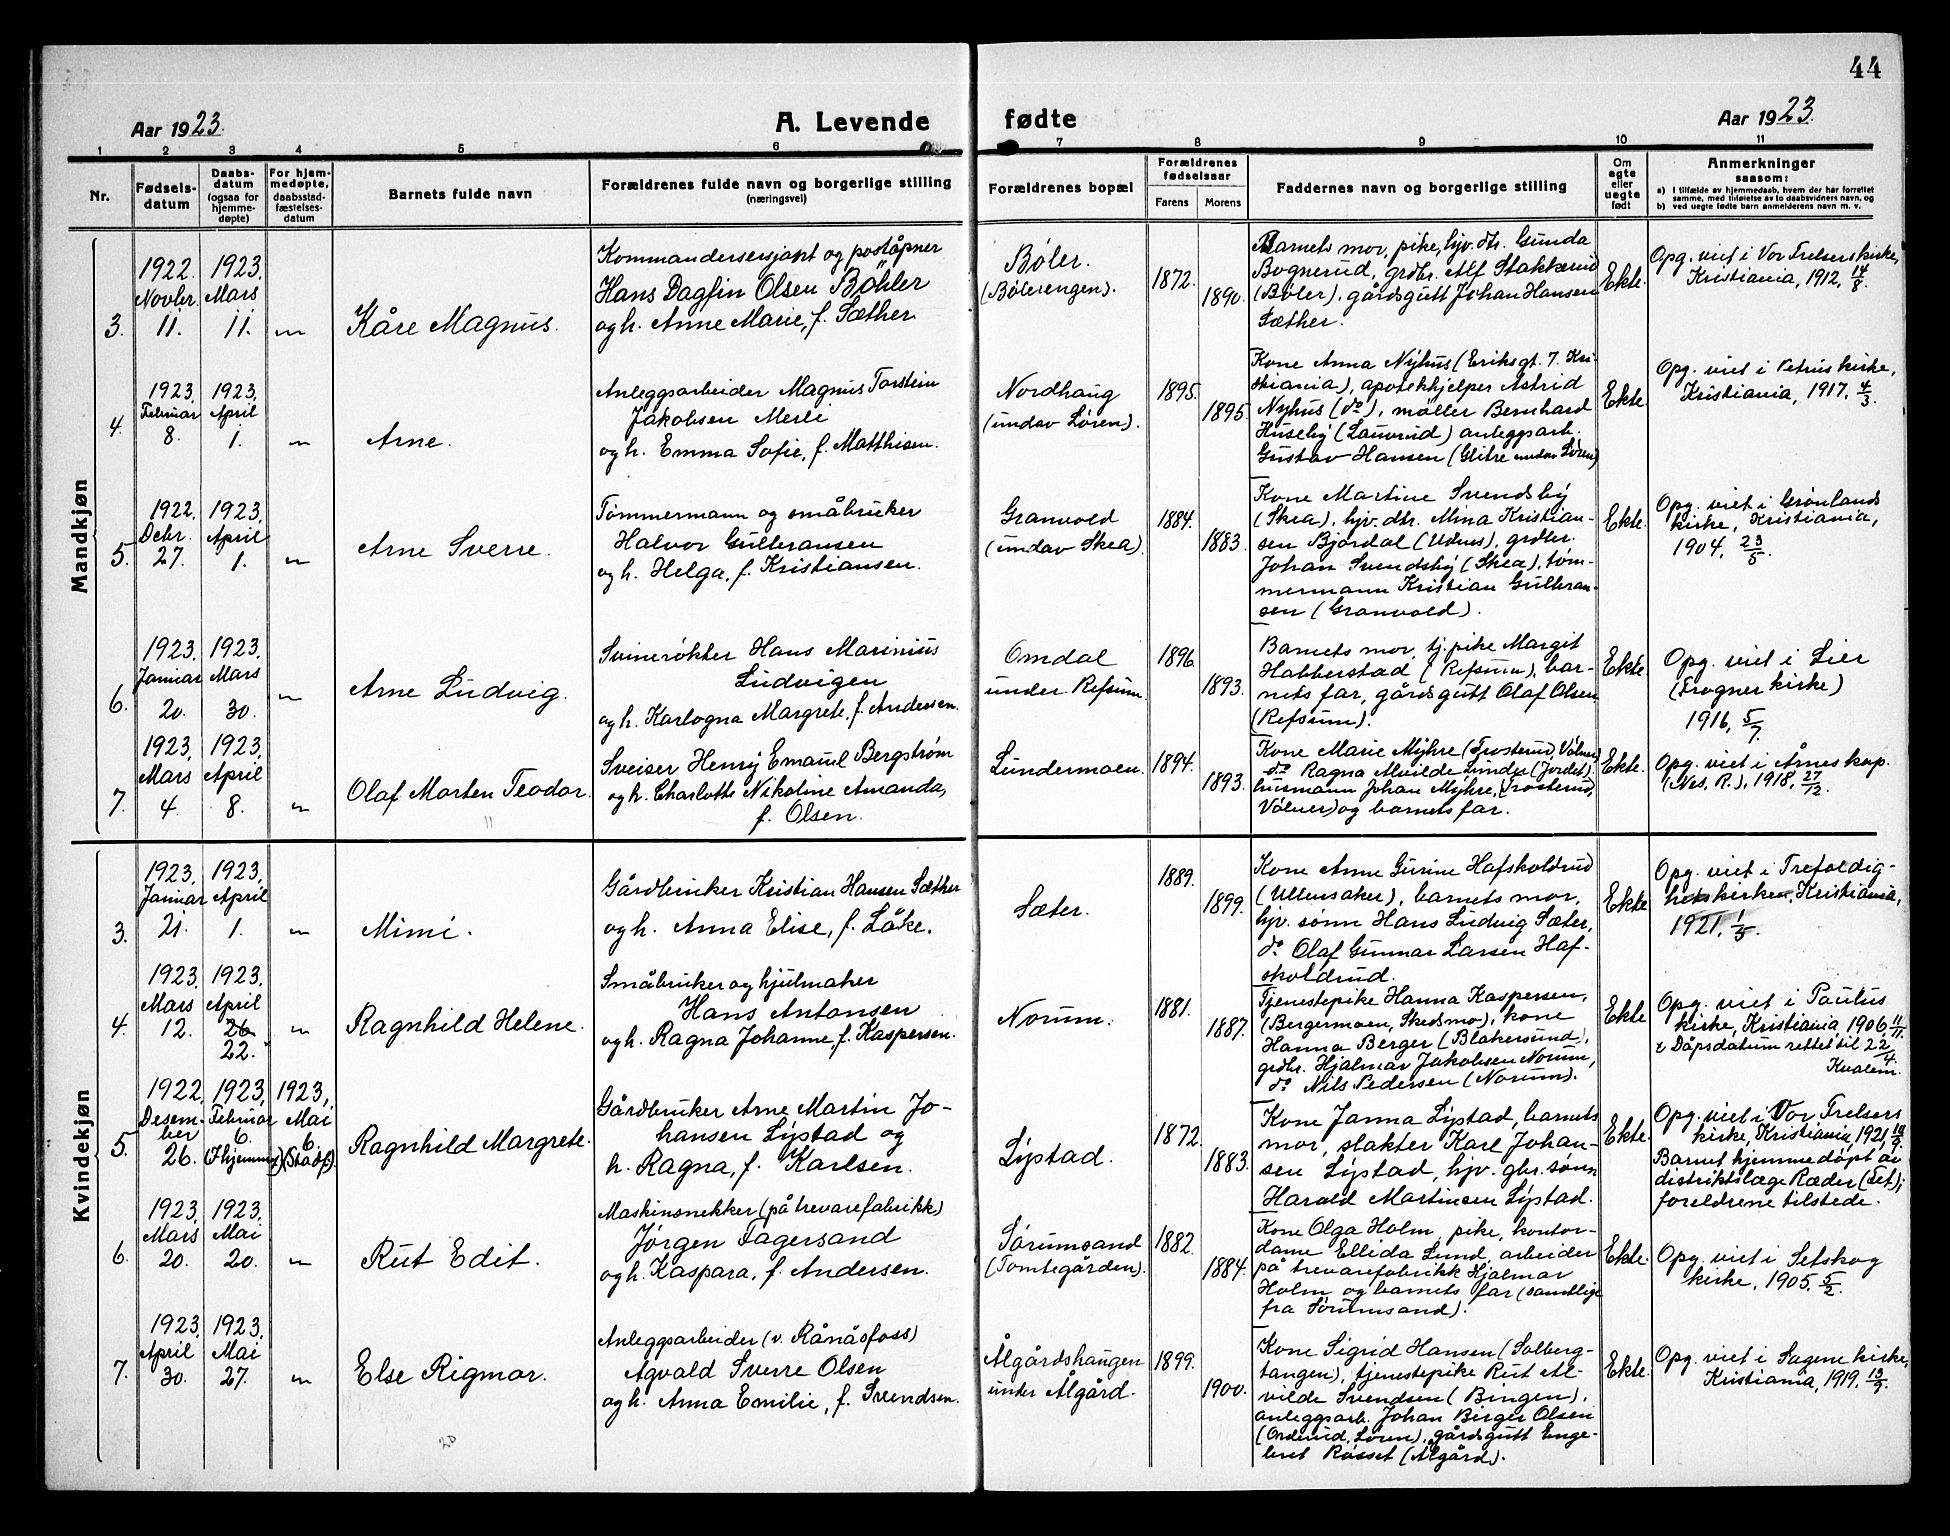 44
Aar 1923.
A. Levende
fødte
Aar 1923.
1 2 3 4 5 6 7 8 9 10 11
Nr.
Fødsels-
datum
Daabs-
datum
(ogsaa for
hjemme-
døpte)
For hjem-
medøpte,
daabsstad-
fæstelses-
datum
Barnets fulde navn
Forældrenes fulde navn og borgerlige stilling
(næringsvei)
Forældrenes bopæl
Forældrenes
fødselsaar
Farens Morens
Faddernes navn og borgerlige stilling
Om
ægte
eller
uegte
født
Anmerkninger
saasom:
a) I tilfælde av hjemmedaab, hvem der har forrettet
samme, med tilføielse av to daabsvidners navn, og
b) ved uegte fødte barn anmelderens navn m. v.
Mandkjøn
3.
1922.
Novbr.
11.
1923.
Mars
11.
"
Kåre Magnus.
Kommandersersjant og poståpner
Hans Dagfin Olsen Böhler
og h. Anne Marie, f. Sæther
Bøler.
(Bølerengen).
1872.
1890.
Barnets mor, pike, hjv. dtr. Gunda
Bognerud, grdbr. Alf Stakkerud
(Bøler), gårdsgutt Johan Hansen
Sæther.
Ekte.
Opg. viet i Vor Frelsers kirke,
Kristiania, 1912, 14/8.
4.
1923.
Februar
8.
1923.
April
1.
"
Arne.
Anleggsarbeider Magnus Torstein
Jakobsen Merli
og h. Emma Sofie, f. Matthisen.
Nordhaug
(undav Løren).
1895.
1895.
Kone Anna Nyhus (Eriksgt. 7. Kri-
stiania), apotekhjelper Astrid
Nyhus (do), møller Bernhard
Huseby (Lauvrud) anleggsarb.
Gustav Hansen (Glitre undav Løren)
Ekte.
Opg. viet i Petrus kirke,
Kristiania, 1917, 4/3.
5.
1922.
Debr.
27.
1923.
April
1.
"
Arne Sverre.
Tømmermann og småbruker
Halvor Gulbransen
og h. Helga, f. Kristiansen.
Granvold
(undav Skea).
1884.
1883.
Kone Martine Svendsby
(Skea), hjv. dtr. Mina Kristian-
sen Bjørdal (Udnes), grdbr.
Johan Svendsby (Skea), tøm-
mermann Kristian Gulbran-
sen (Granvold).
Ekte.
Opg. viet i Grønlands
kirke, Kristiania,
1904, 23/5.
6.
1923.
Januar
20.
1923.
Mars
30.
"
Arne Ludvig.
Svinerøkter Hans Marinius
Ludvigen
og h. Karlogna Margrete, f. Andersen.
Omdal
under Refsum.
1896.
1893.
Barnets mor, tj. pike Margit
Habberstad (Refsum), bar-
nets far, gårdsgutt Olaf Olsen
(Refsum).
Ekte.
Opg. viet i Lier
(Frogner kirke)
1916, 5/7.
7.
1923.
Mars
4.
1923.
April
8.
"
Olaf Morten Teodor.
Sveiser Henry Emanuel Bergstrøm
og h. Charlotte Nikoline Amanda,
f. Olsen.
Lundermoen.
1894.
1893.
Kone Marie Myhre (Trosterud, Vølner)
do Ragna Alvilde Lunder (Jordet),
husmann Johan Myhre, (Trosterud,
Vølner) og barnets far.
Ekte.
Opg. viet i Årnes kap.
(Nes, R.), 1918, 27/12.
Kvindekjøn
3.
1923.
Januar
21.
1923.
April
1.
"
Mimi.
Gårdbruker Kristian Hansen Sæther
og h. Anna Elise, f. Låke.
Sæter.
1889.
1899.
Kone Anne Gurine Hafskoldrud
(Ullensaker), barnets mor,
hjv. sønn Hans Ludvig Sæter,
do Olaf Gunnar Larsen Haf-
skoldrud.
Ekte
Opg. viet i Trefoldig-
hetskirken, Kristiania,
1921, 1/5.
4.
1923.
Mars
12.
1923.
April
26
22.
"
Ragnhild Helene.
Småbruker og hjulmaker
Hans Antonsen
og h. Ragna Johanne, f. Kaspersen.
Norum.
1881.
1887.
Tjenestepike Hanna Kaspersen,
(Bergermoen, Skedsmo), kone
Hanna Berger (Blakersund),
grdbr. Hjalmar Jakobsen Norum,
do Nils Pedersen (Norum).
Ekte
Opg. viet i Paulus
kirke, Kristiania, 1906, 11/11.
Dåpsdatum rettet til 22/4.
Kvalem.
5.
1922.
Desem-
ber
26.
1923.
Februar
6.
(Hjemme)
1923.
Mai
6.
(Stadf.)
Ragnhild Margrete.
Gårdbruker Arne Martin Jo-
hansen Lystad og
h. Ragna, f. Karlsen.
Lystad.
1872.
1883.
Kone Janna Lystad, barnets
mor, slakter Karl Johan-
sen Lystad, hjv. gbr. sønn
Harald Martinsen Lystad.
Ekte.
Opg. viet i Vor Frelsers
kirke, Kristiania, 1921,
Barnet hjemmedøpt av
distriktslæge Ræder (Fet);
foreldrene tilstede.
6.
1923.
Mars
20.
1923.
Mai
20.
"
Rut Edit.
Maskinsnekker (på trevarefabrikk)
Jørgen Fagersand
og h. Kaspara, f. Andersen.
Sørumsand
(Tomtegården).
1882.
1884.
Kone Olga Holm, pike, kontor-
dame Ellida Lund, arbeider
på trevarefabrikk Hjalmar
Holm og barnets far (samtlige
fra Sørumsand).
Ekte.
Opg. viet i Setskog
kirke, 1905, 5/2.
7.
1923.
April
30.
1923.
Mai
27.
"
Else Rigmor.
Anleggsarbeider (v. Rånåsfoss)
Agvald Sverre Olsen
og h. Anna Emilie, f. Svendsen.
Ålgårdshaugen
under Ålgård.
1899.
1900.
Kone Sigrid Hansen (Solberg-
tangen), tjenestepike Rut Al-
vilde Svendsen (Bingen),
anleggsarb. Johan Birger Olsen
(Orderud, Løren), gårdsgutt Enge-
bret Røsset (Ålgård).
Ekte.
Opg. viet i Sagene kirke,
Kristiania, 1919, 13/9.
20